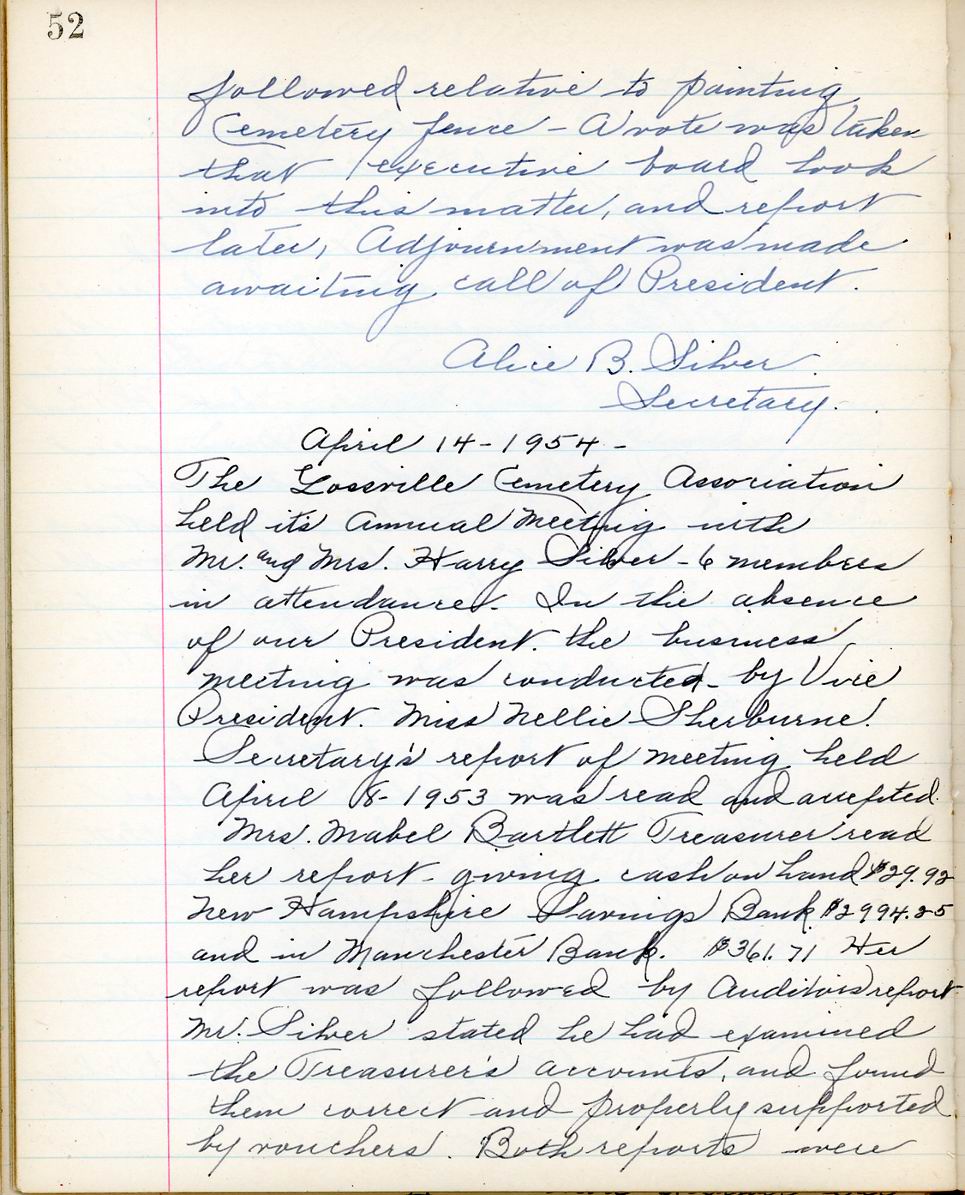 52
followed relative to painting
Cemetery fence – A vote was taken
that executive board look
into this matter, and report
later, Adjournment was made
awaiting call of President.
Alice B. Silver.
Secretary.
April 14 - 1954 -
The Gossville Cemetery Association
held it's Annual Meeting with
Mr. and Mrs. Harry Silver - 6 members
in attendance. In the absence
of our President. the business
meeting was conducted - by Vice
President. Miss Nellie Sherburne.
Secretary's report of meeting held
April 8 - 1953 was read and accepted.
Mrs. Mabel Bartlett Treasurer read
her report - giving cash on hand $29.92
New Hampshire Savings Bank $2994.25
and in Manchester Bank. $361.71 Her
report was followed by Auditors report
Mr. Silver stated he had examined
the Treasurer's accounts, and found
them correct and properly supported
by vouchers. Both reports were